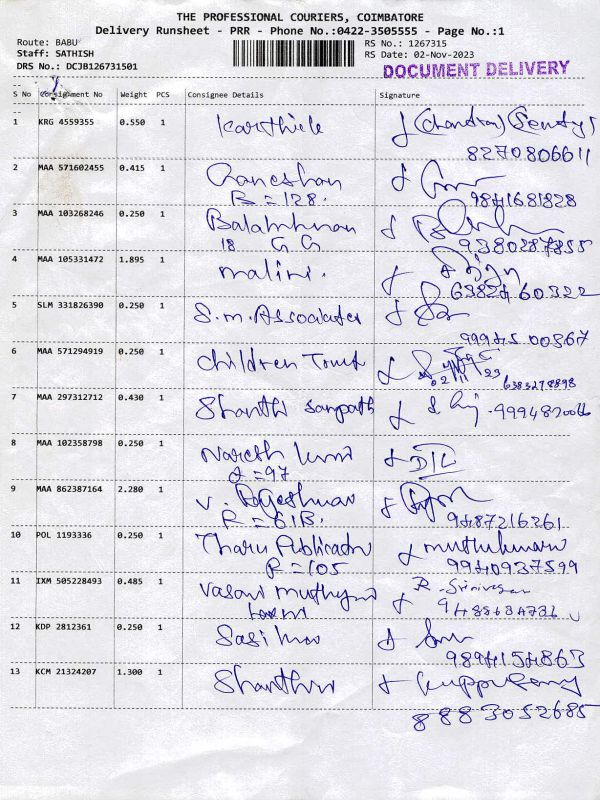 THE PROFESSIONAL COURIERS, COIMBATORE
Delivery Runsheet - PRR - Phone No.:0422-3505555 - Page No.:1
Route: BABU
Staff: SATHISH
DRS No.: DCJB126731501
RS No.: 1267315
RS Date: 02-Nov-2023
DOCUMENT DELIVERY
S No Consignment No Weight PCS Consignee Details Signature
1 KRG 4559355 0.550 1 Karthick (Chandra)
8270806611
2 MAA 571602455 0.415 1 Ganeshan
R=128. 9841681828
3 MAA 103268246 0.250 1
18 G G 9380287855
4 MAA 105331472 1.895 1 malini.
63824 60322
5 SLM 331826390 0.250 1 S.m. Associates
99945 00367
6 MAA 571294919 0.250 1 Children Trust
02/11/23 6383278898
7 MAA 297312712 0.430 1 Shanthi Sampath
8 MAA 102358798 0.250 1 Naresh kumar
=97
9 MAA 862387164 2.280 1 V. Rajeshwar
R=61B. 9487216261
10 POL 1193336 0.250 1 Tharu Publication muthukumar
R=105 9940937599
11 IXM 505228493 0.485 1 Vasavi R. Srinivasan
12 KDP 2812361 0.250 1 Sasi kumar
9894154863
13 KCM 21324207 1.300 1 Kuppusamy
8883052685